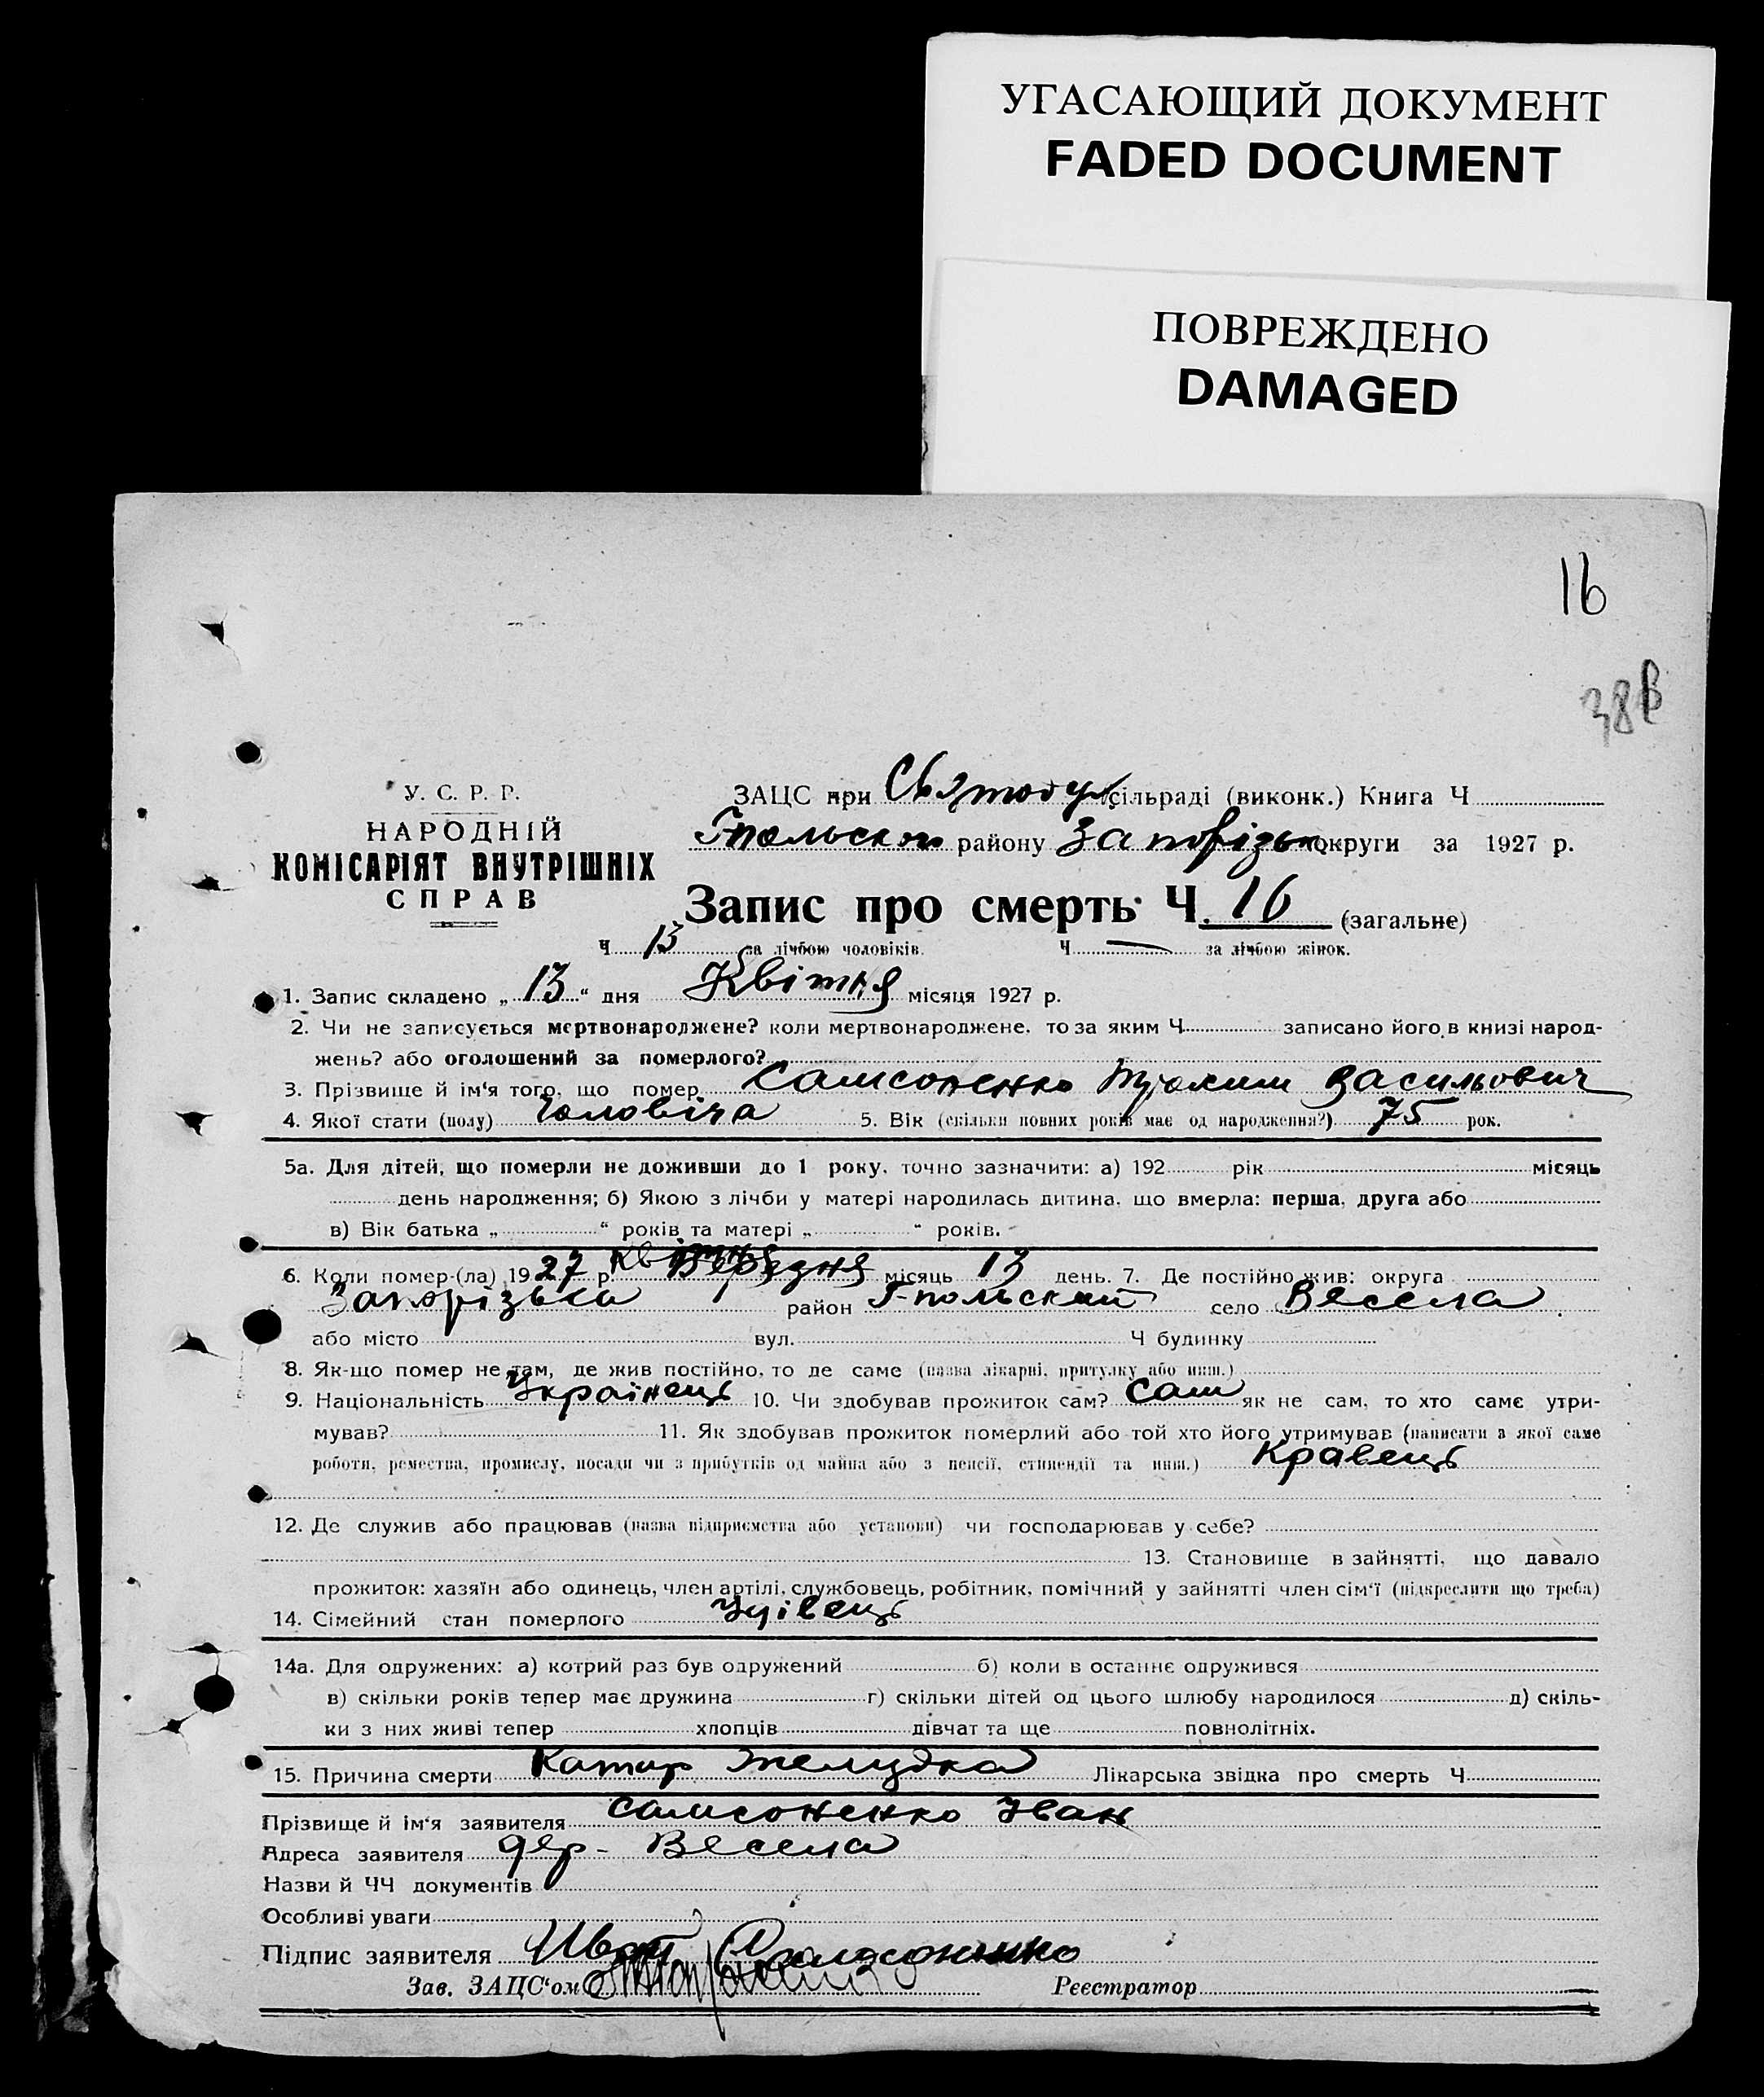 УГАСАЮЩИЙ ДОКУМЕНТ
FADED DOCUMENT
ПОВРЕЖДЕНО
DAMAGED
16
38в
У. С. Р. Р.
НАРОДНІЙ
КОМІСАРІЯТ ВНУТРІШНІХ
СПРАВ
ЗАЦС при сільраді (виконк.) Книга Ч
Г-польского району Запорізьк округи за 1927 р.
Запис про смерть Ч. 16 (загальне)
Ч 13 за лічбою чоловіків. Ч — за лічбою жінок.
1. Запис складено „ 13 “ дня Квітня місяця 1927 р.
2. Чи не записується мертвонароджене? коли мертвонароджене, то за яким Ч. записано його в книзі народ-
жень? або оголошений за померлого?
3. Прізвище й ім‘я того, що помер Самсоненко Васильович
4. Якої стати (полу) Чоловіча 5. Вік (скільки повних років має од народження?) 75 рок.
5а. Для дітей, що померли не доживши до 1 року, точно зазначити: а) 192 рік місяць
день народження; б) Якою з лічби у матері народилась дитина, що вмерла: перша, друга або
в) Вік батька „ “ років та матері „ “ років.
6. Коли помер-(ла) 1927 р. Квітня місяць 13 день. 7. Де постійно жив: округа
Запорізька район Г-польский село Весела
або місто вул. Ч будинку
8. Як-що помер не там, де жив постійно, то де саме (назва лікарні, притулку або инш.)
9. Національність Українець 10. Чи здобував прожиток сам? Сам як не сам, то хто саме утри-
мував? 11. Як здобував прожиток померлий або той хто його утримував (написати з якої саме
роботи, ремества, промислу, посади чи з прибутків од майна або з пенсії, стипендії та инш.) Кравець
12. Де служив або працював (назва підприємства або установи) чи господарював у себе?
13. Становище в зайнятті, що давало
прожиток: хазяїн або одинець, член артілі, службовець, робітник, помічний у зайнятті член сім‘ї (підкреслити що треба)
14. Сімейний стан померлого Удівець
14а. Для одружених: а) котрий раз був одружений б) коли в останнє одружився
в) скільки років тепер має дружина г) скільки дітей од цього шлюбу народилося д) скіль-
ки з них живі тепер хлопців дівчат та ще повнолітніх.
15. Причина смерти Катар желудка Лікарська звідка про смерть Ч.
Прізвище й ім‘я заявителя Самсоненко Іван
Адреса заявителя дер- Весела
Назви й ЧЧ документів
Особливі уваги
Підпис заявителя Иван Самсоненко
Зав. ЗАЦС‘ом Реєстратор